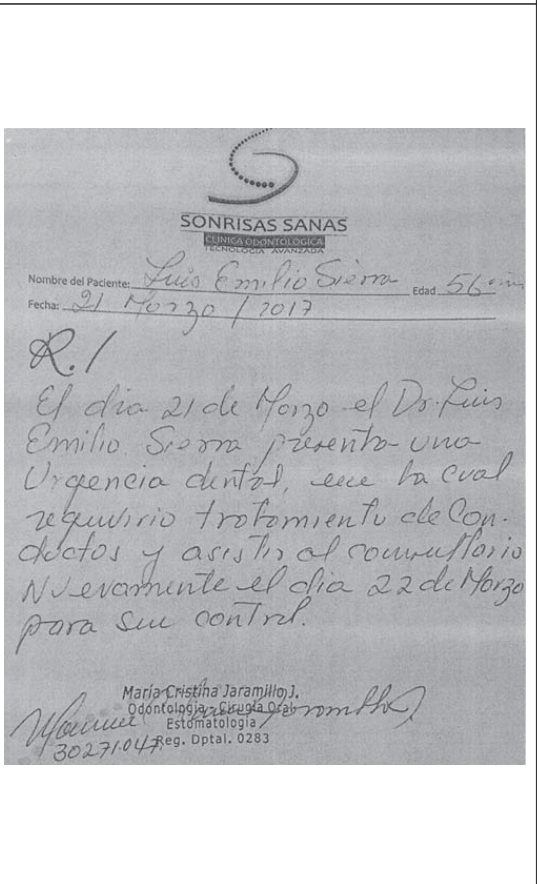 SONRISAS SANAS
CLINICA ODONTOLOGICA
TECNOLOGÍA AVANZADA
Nombre del Paciente: Luis Emilio Sierra Edad 56 años
Fecha: 21 Marzo / 2017
R./
El dia 21 de Marzo el Dr. Luis
Emilio Sierra presento una
Urgencia dental, en la cual
requirio tratamiento de Con-
ductos y asistir al consultorio
Nuevamente el dia 22 de Marzo
para su control.
María Cristina Jaramillo J.
Odontología - Cirugía Oral
Estomatología
30271047 Reg. Dptal. 0283